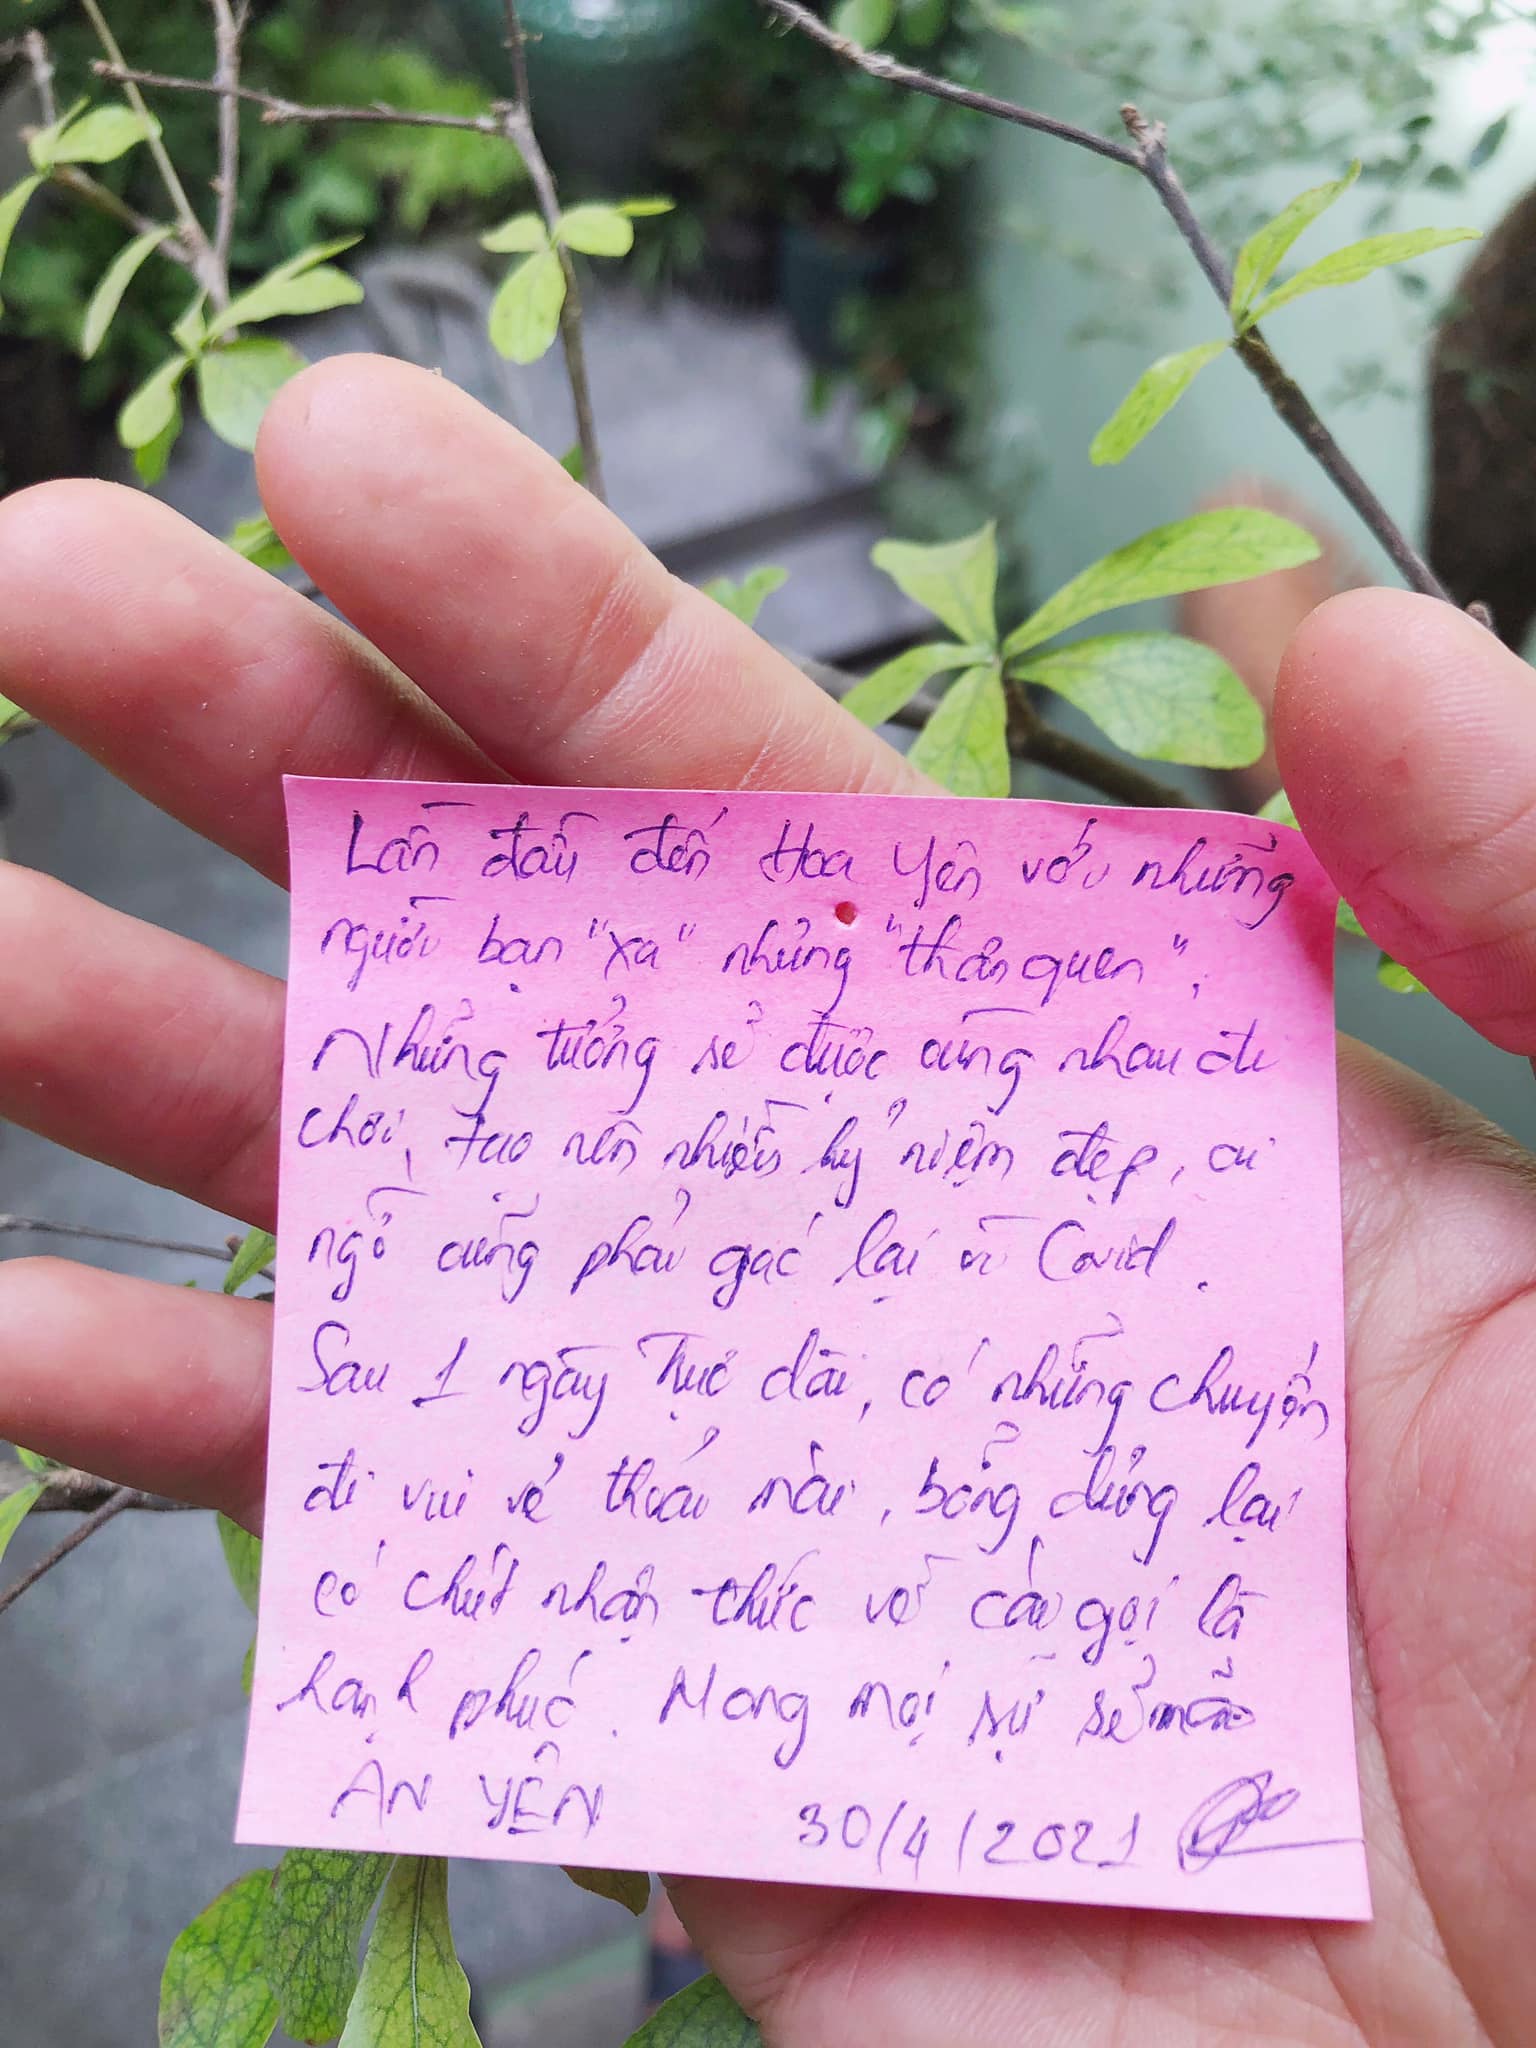 Lần đầu đến Hoa Yên với những
người bạn "xa" nhưng "thân quen",
Những tưởng sẽ được cùng nhau đi
chơi, tạo nên nhiều kỷ niệm đẹp, ai
ngờ cũng phải gác lại vì Covid.
Sau 1 ngày thức dài, có những chuyến
đi vui vẻ thoải mái, bỗng dừng lại
có chút nhận thức về cái gọi là
hạnh phúc. Mong mọi sự sẽ mãi
AN YÊN 30/4/2021